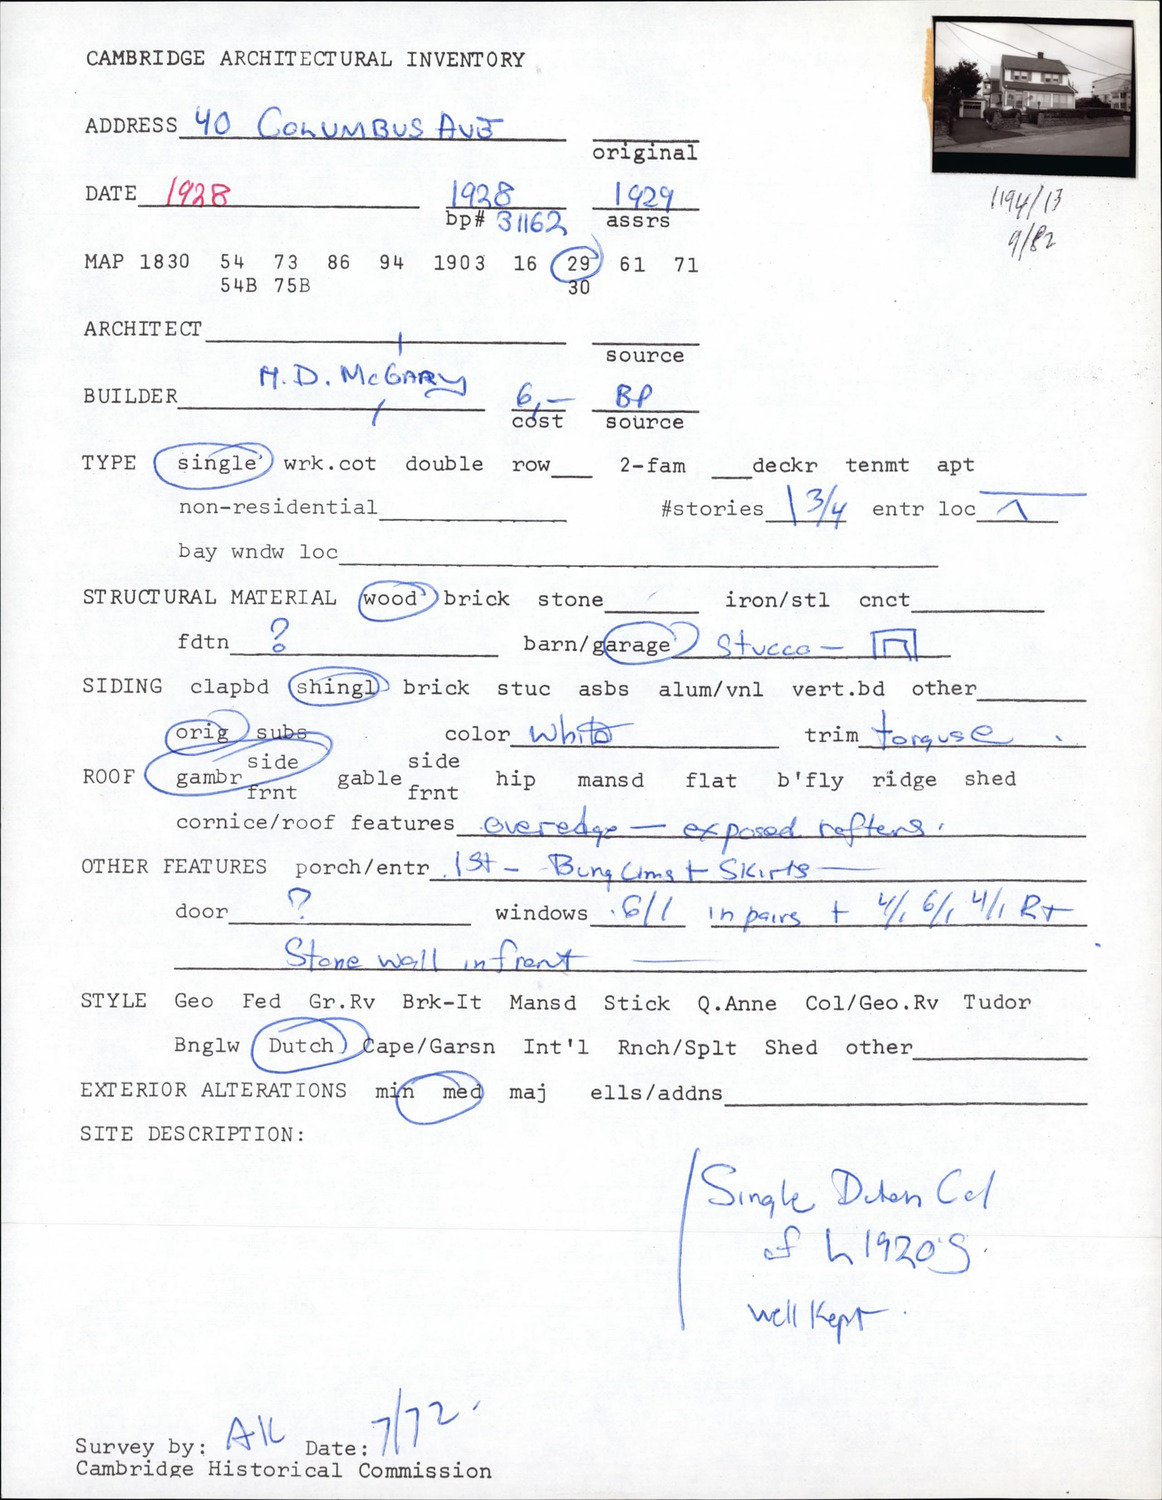 CAMBRIDGE ARCHITECTURAL INVENTORY
ADDRESS 40 COLUMBUS AVE
original
DATE 1928 1928 1929
bp# 31162 assrs
1194/13
9/82
MAP 1830 54 73 86 94 1903 16 29 61 71
54B 75B 30
ARCHITECT
source
BUILDER M.D. McGARRY 6,— BP
cost source
TYPE single wrk.cot double row 2-fam deckr tenmt apt
non-residential #stories 1 3/4 entr loc
bay wndw loc
STRUCTURAL MATERIAL wood brick stone iron/stl cnct
fdtn ? barn/garage Stucco —
SIDING clapbd shingl brick stuc asbs alum/vnl vert.bd other
orig subs color White trim torquse
ROOF gambr side frnt gable side frnt hip mansd flat b'fly ridge shed
cornice/roof features overedge — exposed rafters.
OTHER FEATURES porch/entr 1st - + Skirts
door ? windows 6/1 in pairs + 4/1 6/1 4/1 Rt
Stone wall in front
STYLE Geo Fed Gr.Rv Brk-It Mansd Stick Q.Anne Col/Geo.Rv Tudor
Bnglw Dutch Cape/Garsn Int'l Rnch/Splt Shed other
EXTERIOR ALTERATIONS min med maj ells/addns
SITE DESCRIPTION:
Single Dutch Col
of L 1920'S.
well kept.
Survey by: AK Date: 7/72.
Cambridge Historical Commission